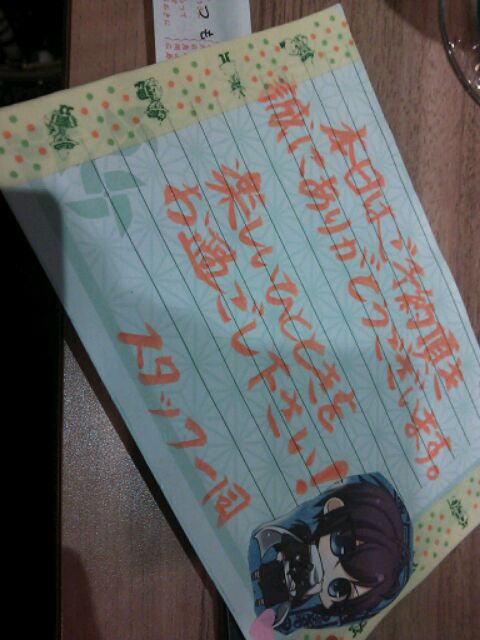 本日はご予約頂き
誠にありがとうございます。
楽しいひとときを
お過ごし下さい!
スタッフ一同